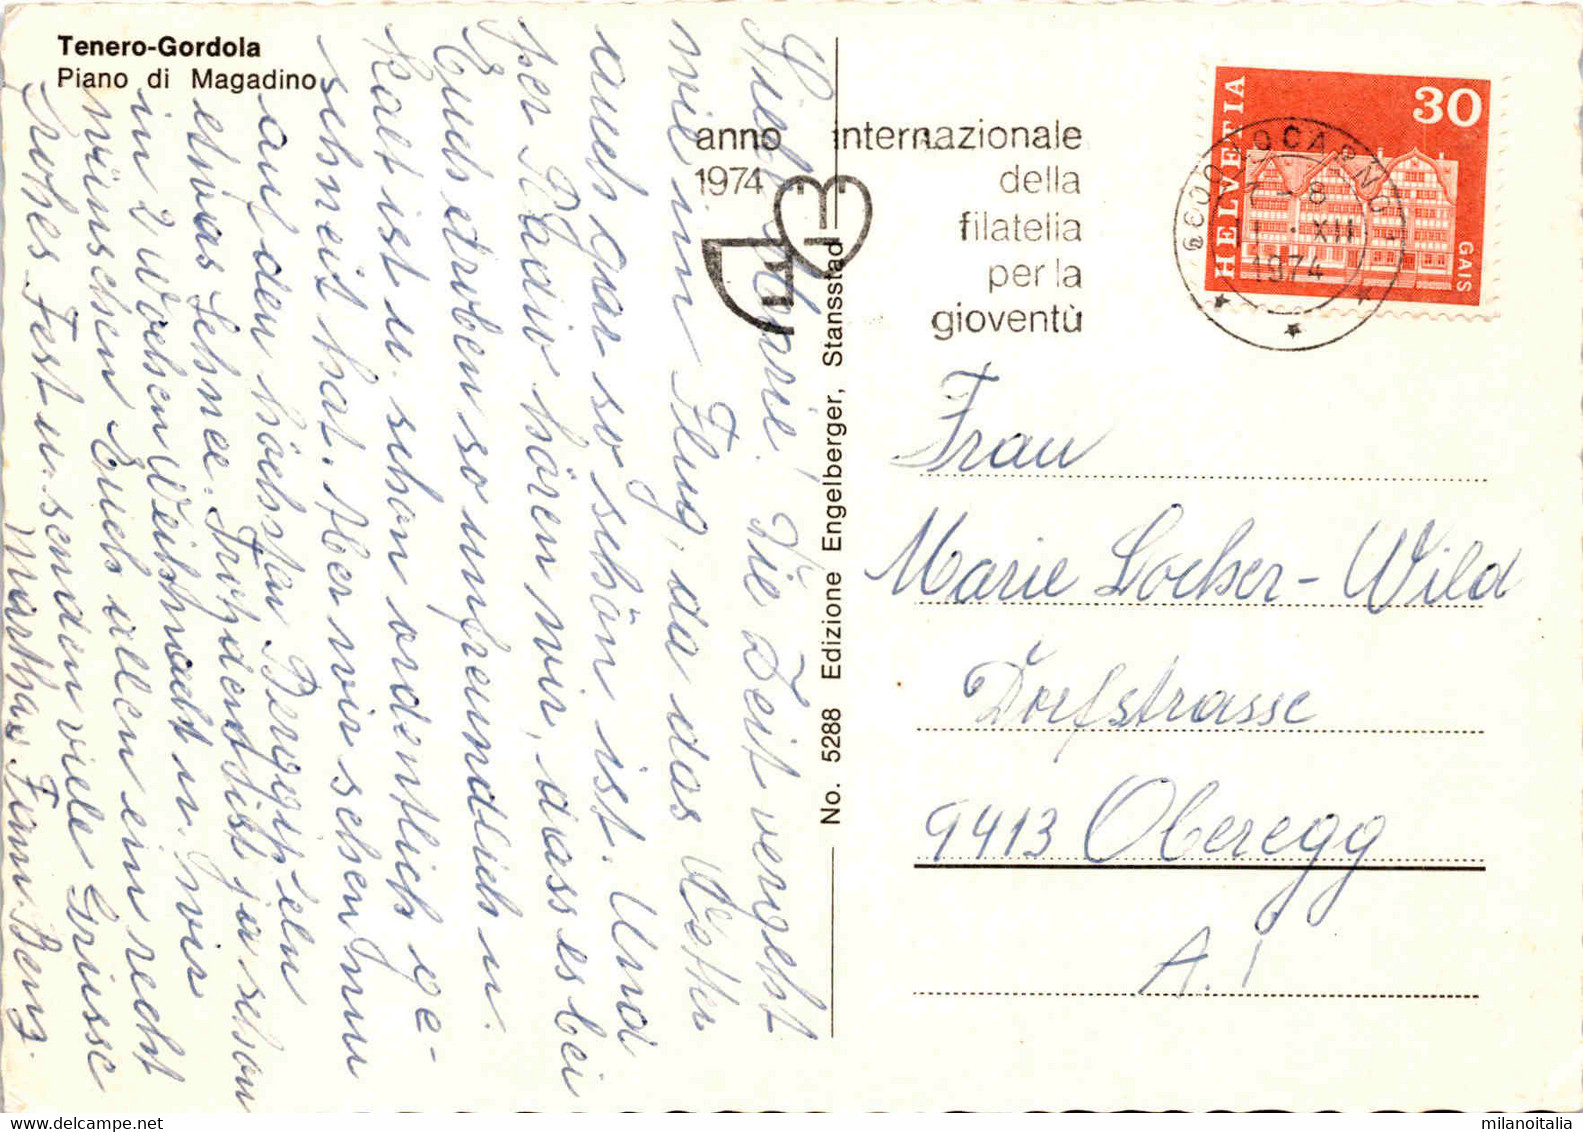 Tenero-Gordola
Piano di Magadino
Liebe Marie! Die Zeit vergeht
wie im Flug, da das Wetter
auch gar so schön ist. Und
per Radio hören wir, dass es bei
Euch droben so unfreundlich u.
kalt ist u. schon ordentlich ge-
schneit hat. Aber wir sehen nur
auf den höchsten Berggipfeln
etwas Schnee. Trotzdem ist ja schon
in 2 Wochen Weihnacht u. wir
wünschen Euch allen ein recht
frohes Fest u. senden viele Grüsse
Martha
No. 5288 Edizione Engelberger, Stansstad
anno internazionale
1974 della
filatelia
per la
gioventù
HELVETIA
30
GAIS
6600 LOCARNO
- 8
XII
1974
Frau
Marie Locher-Wild
Dorfstrasse
9413 Oberegg
A. I
milanoitalia